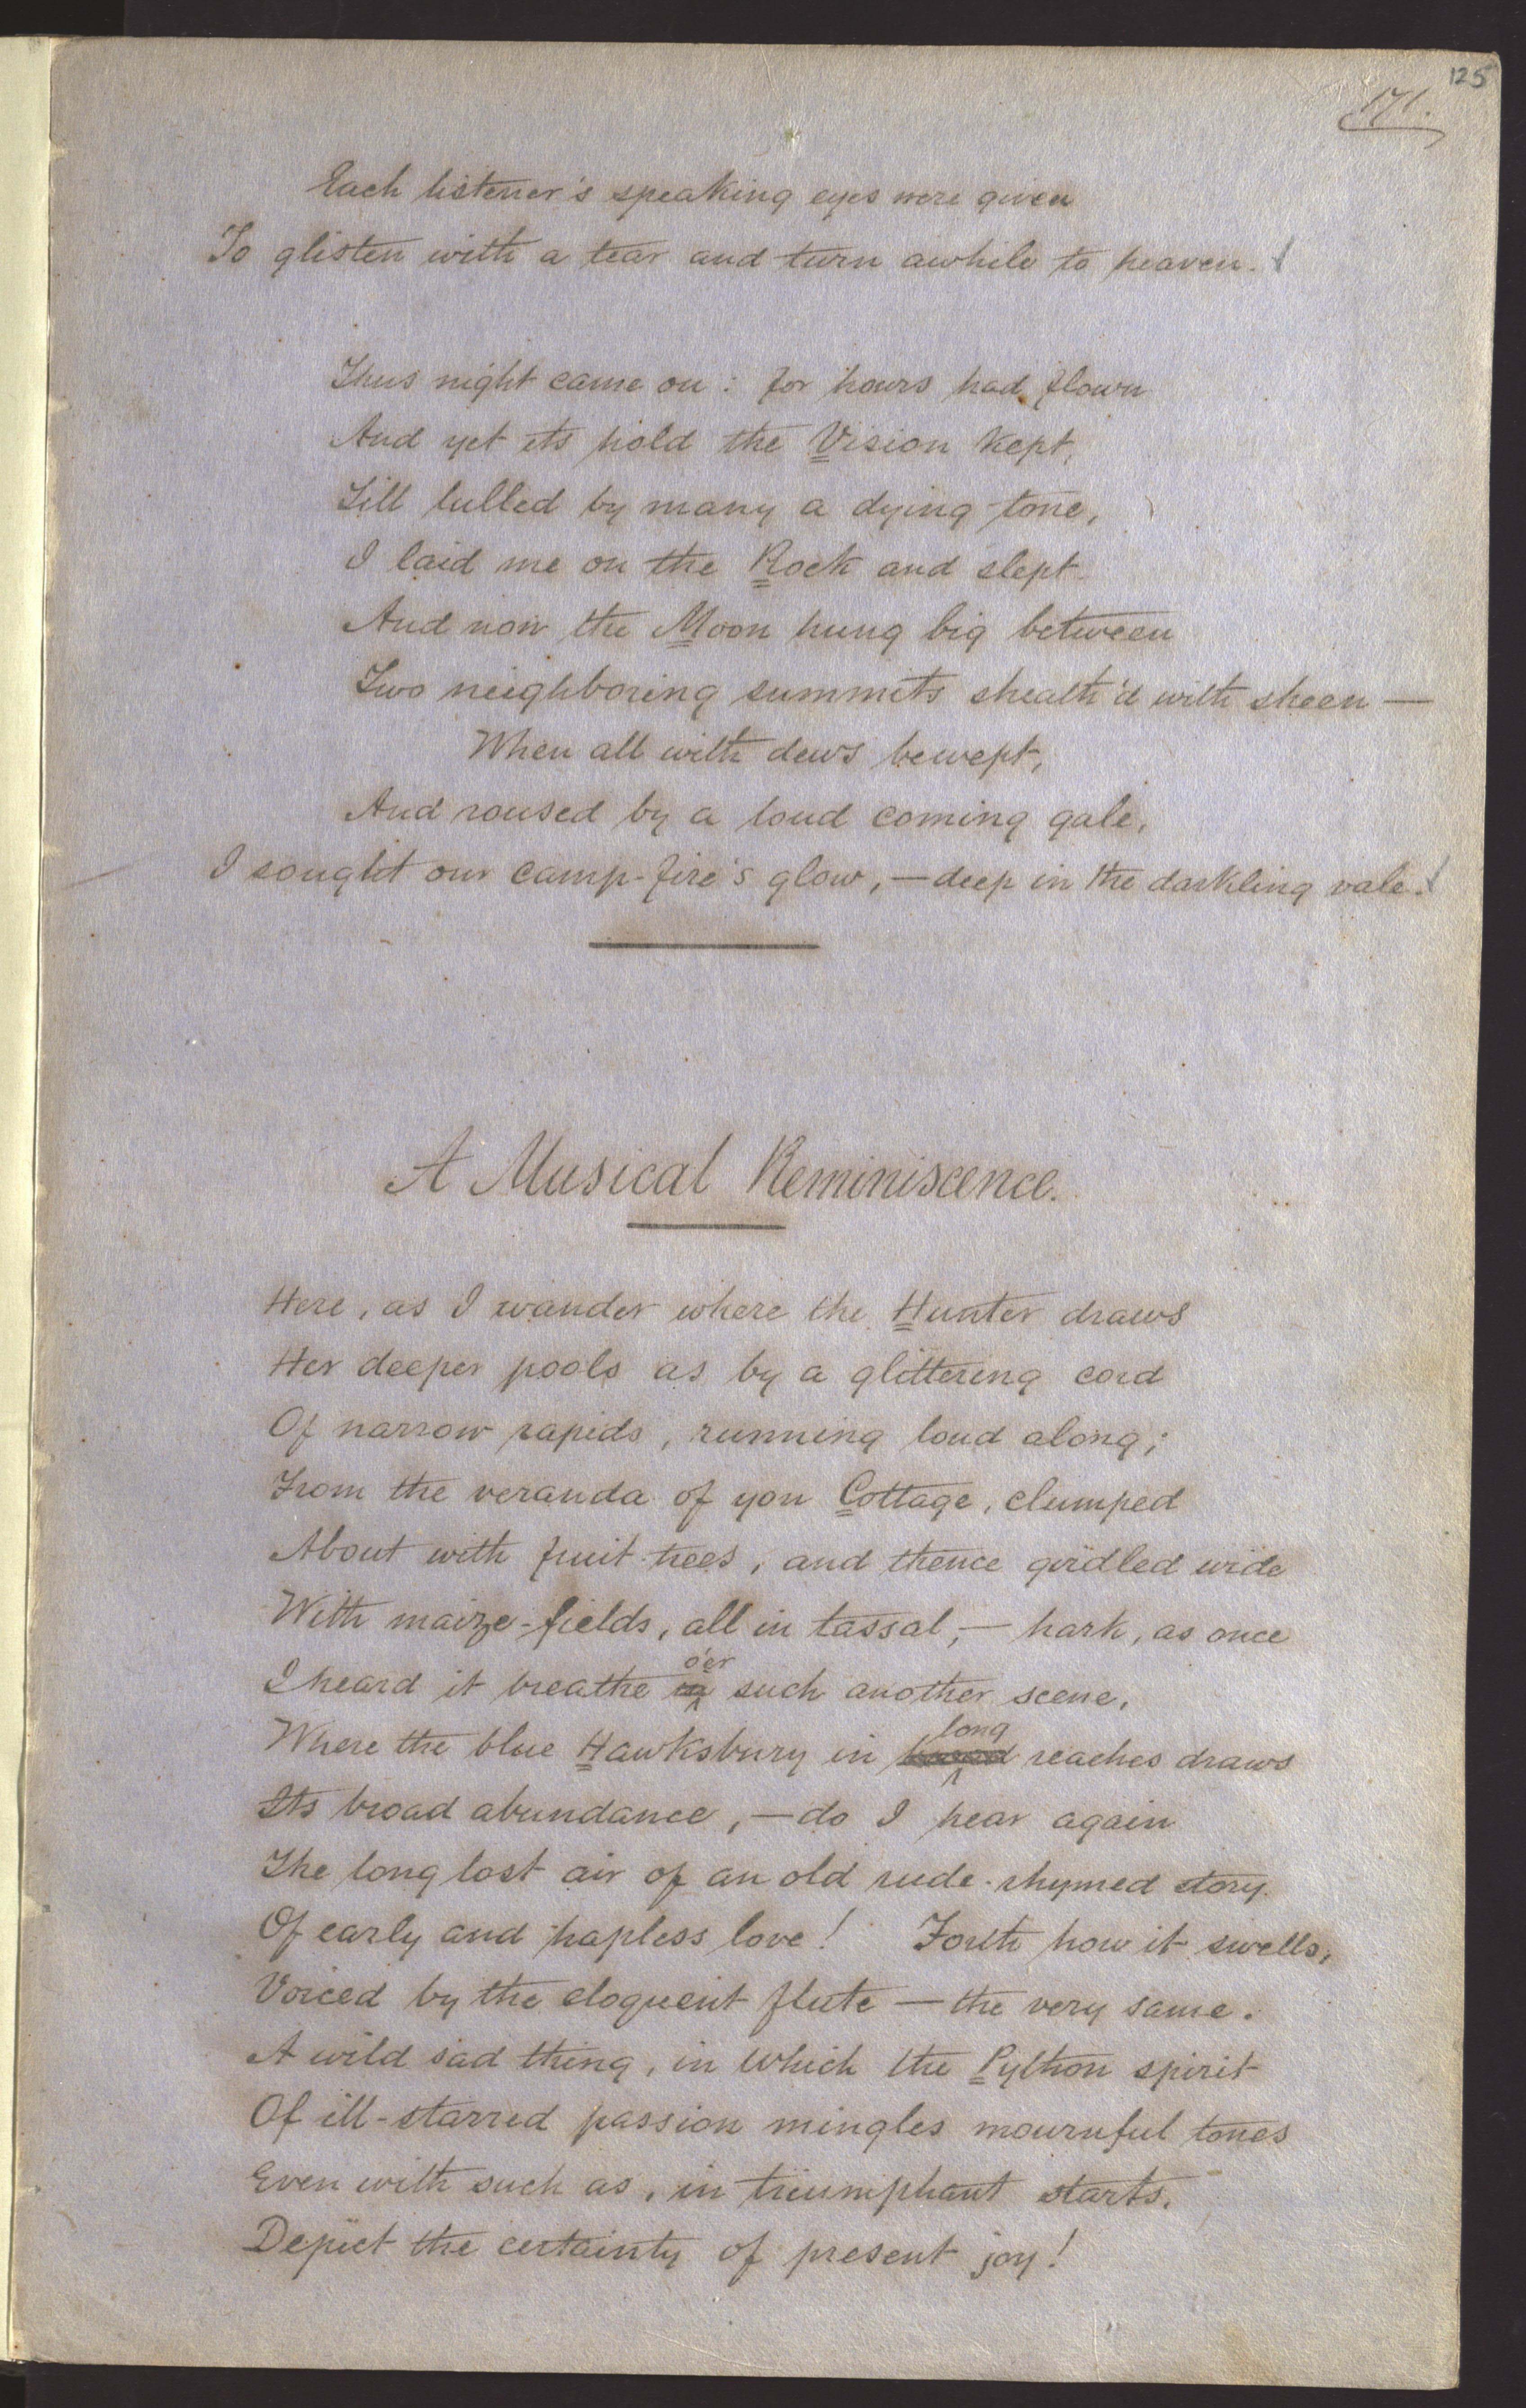 125
171.
Each listener's speaking eyes were given
To glisten with a tear and turn awhile to heaven.
Thus night came on: for hours had flown
And yet its hold the Vision kept,
Till lulled by many a dying tone,
I laid me on the Rock and slept.
And now the Moon hung big between
Two neighboring summits sheath'd with sheen —
When all with dews bewept,
And roused by a loud coming gale,
I sought our camp-fire's glow, — deep in the darkling vale.
A Musical Reminiscence.
Here, as I wander where the Hunter draws
Her deeper pools as by a glittering cord
Of narrow rapids, running loud along;
From the veranda of yon Cottage, clumped
About with fruit-trees, and thence girdled wide
With maize-fields, all in tassal, — hark, as once
o'er
I heard it breathe in such another scene,
long
Where the blue Hawksbury in broad reaches draws
Its broad abundance, — do I hear again
The long lost air of an old rude-rhymed story.
Of early and hapless love! Forth how it swells,
Voiced by the eloquent flute — the very same.
A wild sad thing, in which the Python spirit
Of ill-starred passion mingles mournful tones
Even with such as, in triumphant starts,
Depict the certainty of present joy!